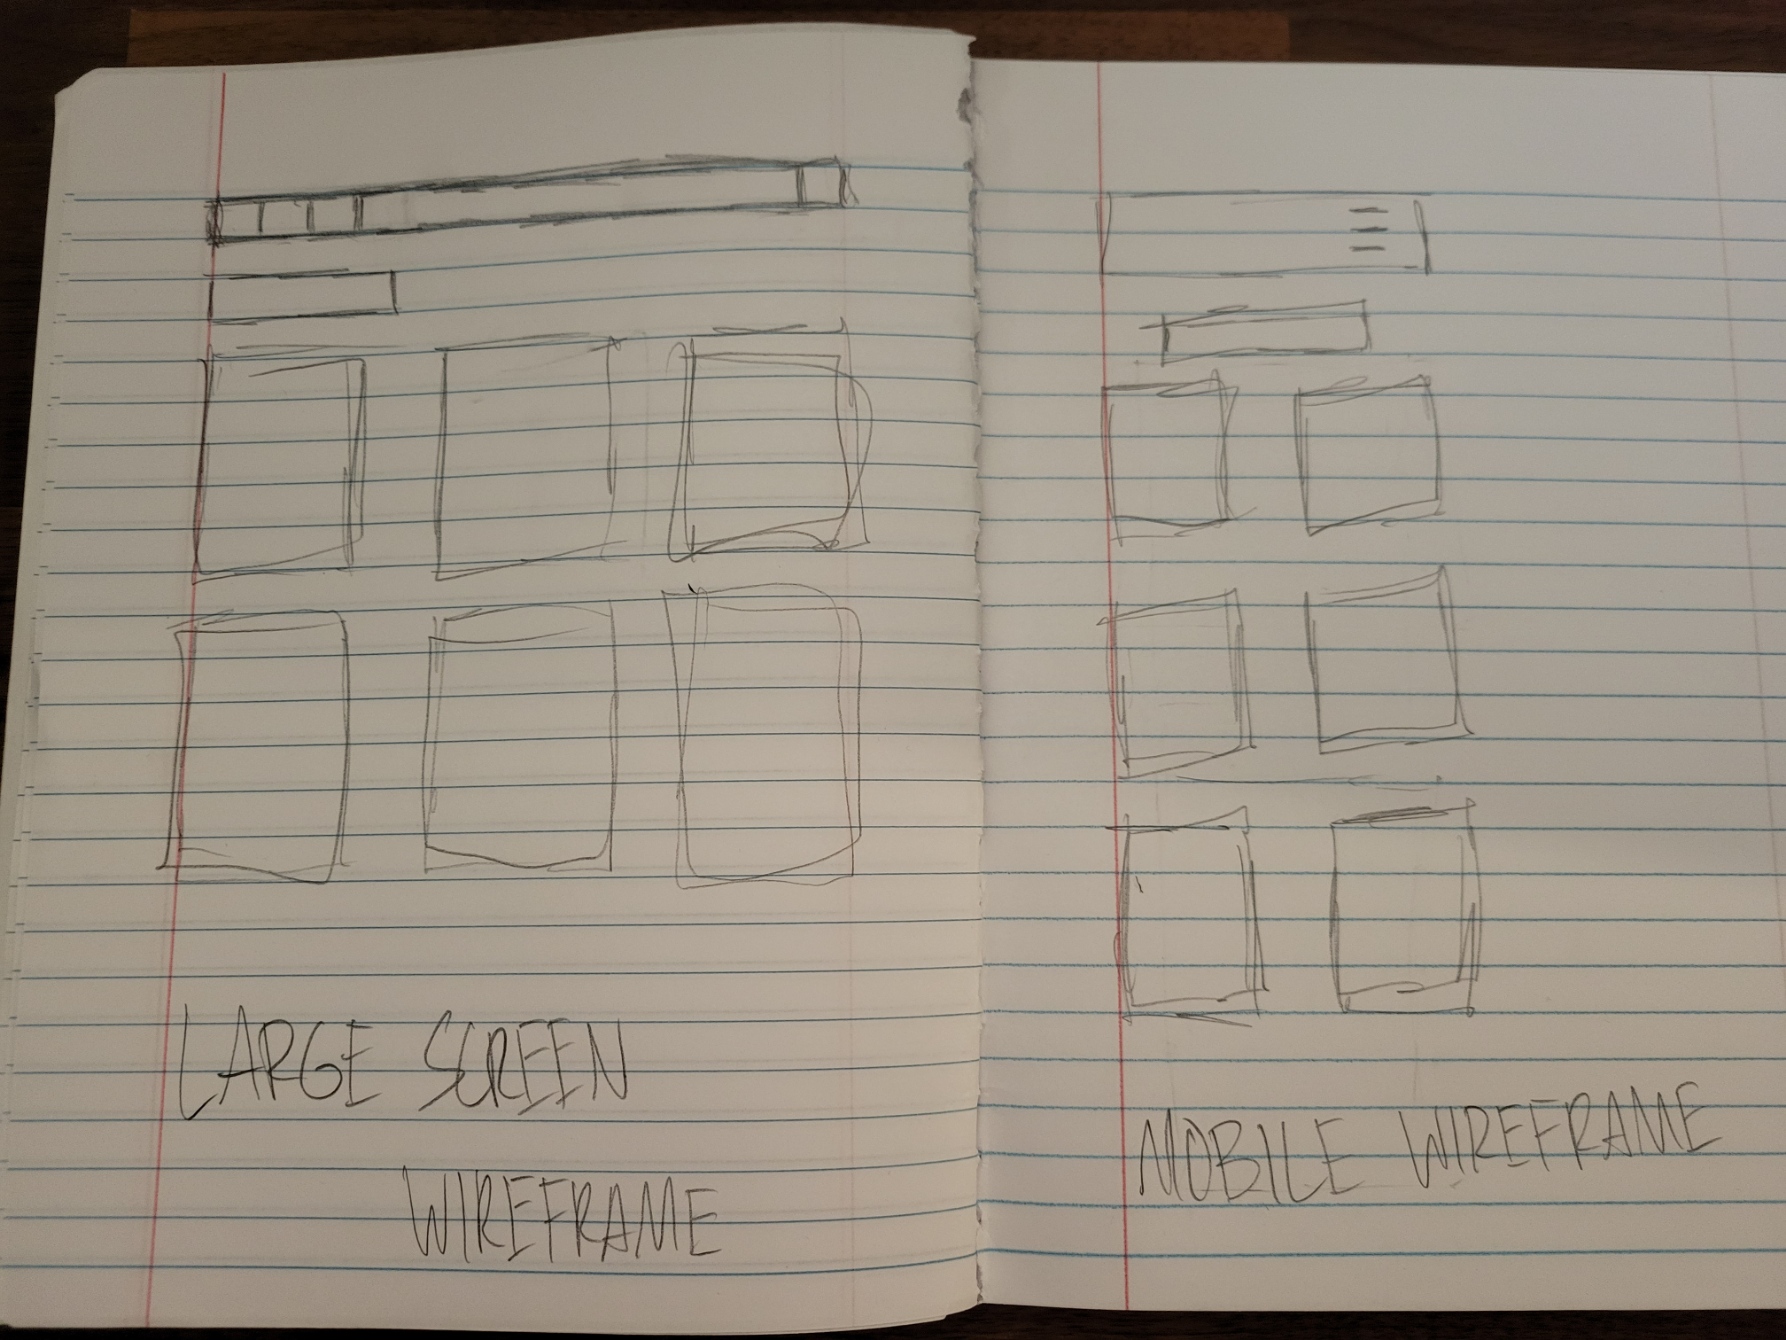 LARGE SCREEN
WIREFRAME
MOBILE WIREFRAME